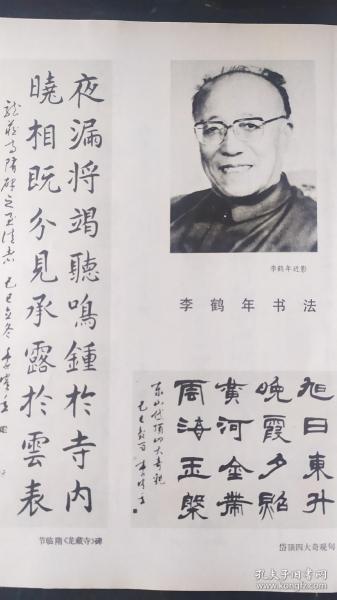 夜漏将竭聽鳴鍾於寺内
曉相既分見承露於雲表
己巳立冬
节临隋《龙藏寺》碑
李鹤年近影
李鹤年书法
旭日東升
晚霞夕
黄河金帶
海玉槃
岱頂四大奇觀
己巳
岱顶四大奇观句
孔夫子旧书网